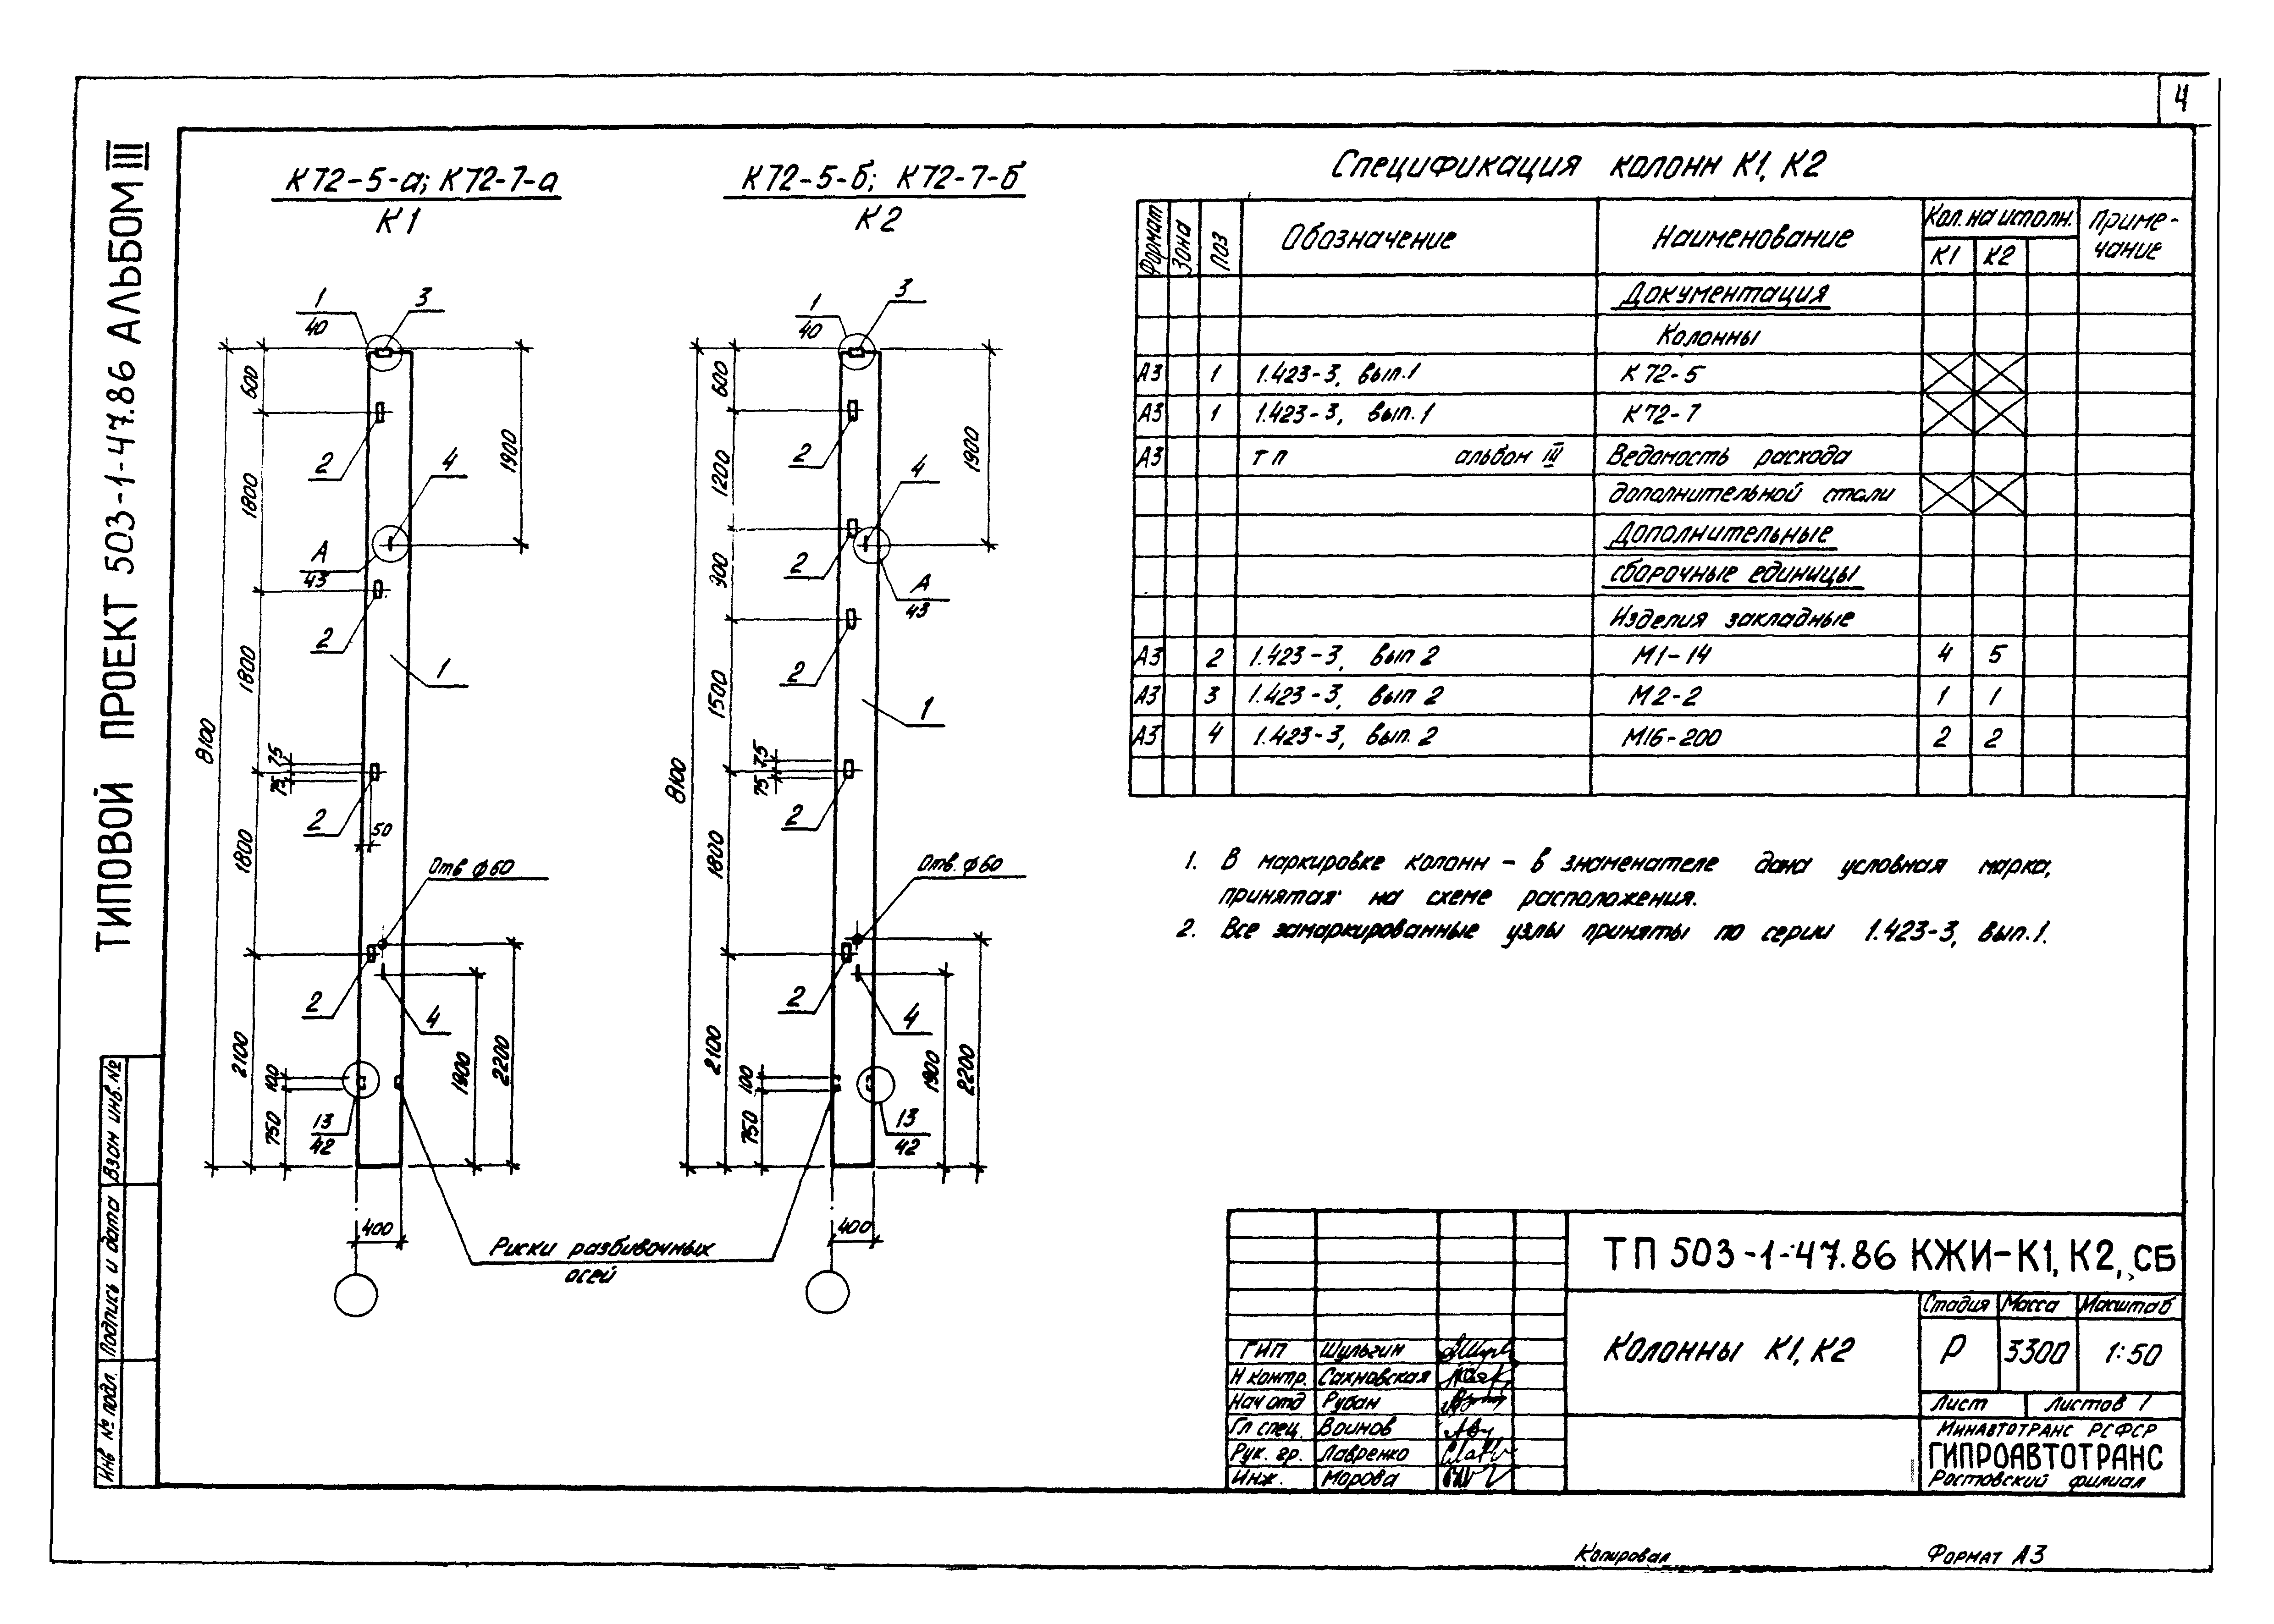 4
ТИПОВОЙ ПРОЕКТ 503-1-47.86 АЛЬБОМ III
К72-5-а; К72-7-а
К1
К72-5-б; К72-7-б
К2
1
40
3
600
1800
1800
1800
2100
8100
1900
2
4
А
43
2
1
75
75
2
50
Отв ф60
2
4
100
750
13
42
1900
2200
400
1
40
3
600
1200
900
1500
1800
2100
8100
1900
2
4
2
А
43
2
1
75
75
2
Отв. ф60
2
4
100
750
13
42
1900
2200
400
Риски разбивочных
осей
Спецификация колонн К1, К2
Формат Зона Поз Обозначение Наименование Кол. на исполн. Приме-
чание
К1 К2
Документация
Колонны
А3 1 1.423-3, вып.1 К72-5
А3 1 1.423-3, вып.1 К72-7
А3 ТП альбом III Ведомость расхода
дополнительной стали
Дополнительные
сборочные единицы
Изделия закладные
А3 2 1.423-3, вып 2 М1-14 4 5
А3 3 1.423-3, вып 2 М2-2 1 1
А3 4 1.423-3, вып. 2 М16-200 2 2
1. В маркировке колонн - в знаменателе дана условная марка,
принятая на схеме расположения.
2. Все замаркированные узлы приняты по серии 1.423-3, вып.1.
ТП 503-1-47.86 КЖИ-К1, К2, СБ
Колонны К1, К2
Стадия Масса Масштаб
Р 3300 1:50
Лист Листов 1
Минавтотранс РСФСР
ГИПРОАВТОТРАНС
Ростовский филиал
ГИП Шульгин
Н контр. Сахновская
Нач отд Рубан
Гл спец. Воинов
Рук. гр. Лавренко
Инж. Морова
Инв № подл. Подпись и дата Взам инв. №
Копировал
Формат А3